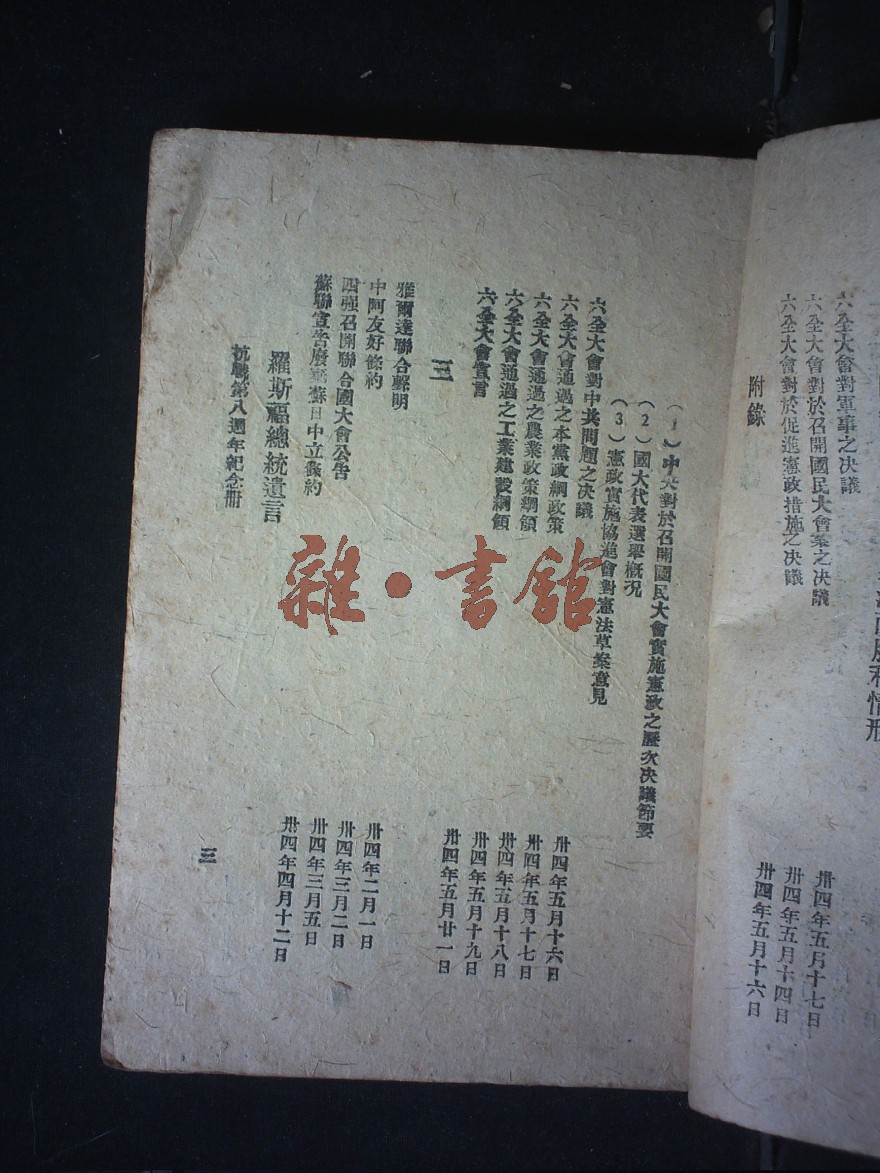 六全大會對軍事之决議
卅四年五月十七日
六全大會對於召開國民大會案之决議
卅四年五月十四日
六全大會對於促進憲政措施之决議
卅四年五月十六日
附錄
(1)中央對於召開國民大會實施憲政之歷次决議節要
(2)國大代表選舉槪况
(3)憲政實施協進會對憲法草案意見
六全大會對中共問題之决議
卅四年五月十六日
六全大會通過之本黨政綱政策
卅四年五月十七日
六全大會通過之農業政策綱領
卅四年五月十八日
六全大會通過之工業建設綱領
卅四年五月十九日
六全大會宣言
卅四年五月廿一日
三
雅爾達聯合聲明
卅四年二月一日
中阿友好條約
卅四年三月二日
四强召開聯合國大會公告
卅四年三月五日
蘇聯宣告廢棄蘇日中立條約
羅斯福總統遺言
卅四年四月十二日
抗戰第八週年紀念册
三
雜·書館